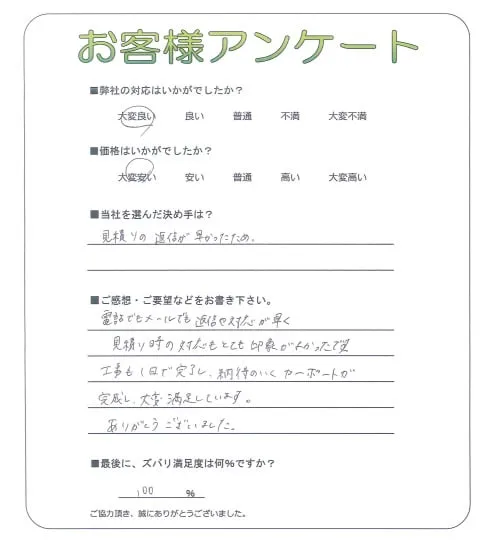 お客様アンケート
■弊社の対応はいかがでしたか？
大変良い 良い 普通 不満 大変不満
■価格はいかがでしたか？
大変安い 安い 普通 高い 大変高い
■当社を選んだ決め手は？
見積りの返信が早かったため。
■ご感想・ご要望などをお書き下さい。
電話でもメールでも返信や対応が早く
見積り時の対応もとても印象がよかったです
工事も1日で完了し、納得のいくカーポートが
完成し、大変満足しています。
ありがとうございました。
■最後に、ズバリ満足度は何%ですか？
100 %
ご協力頂き、誠にありがとうございました。